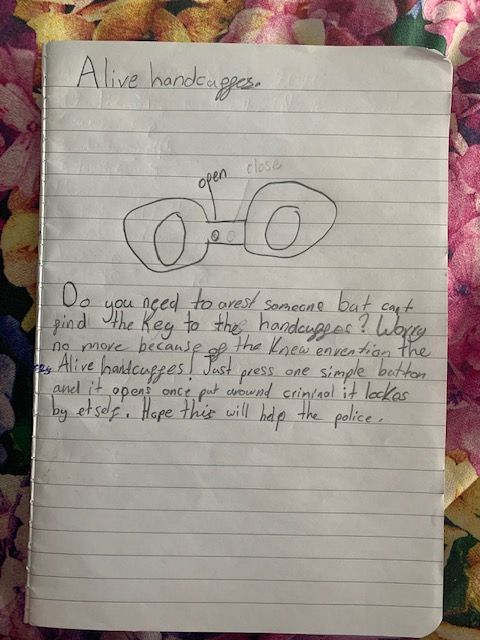 Alive handcuffes.
open
close
Do you need to arest someone but cant
find the Key to the handcuffes? Worry
no more because of the Knew envention the
Alive handcuffes! Just press one simple button
and it opens once put around criminal it lockes
by etself. Hope this will help the police.